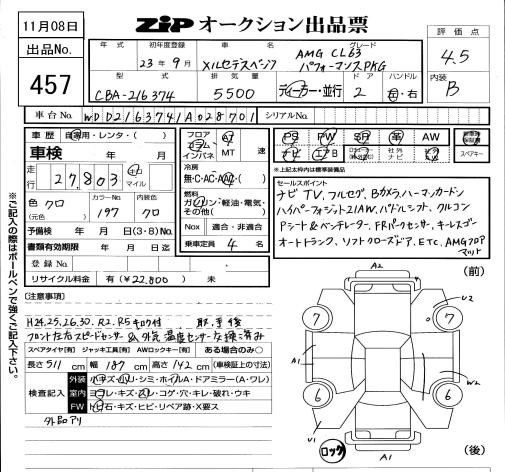 11月08日
ZIP オークション出品票
評価点
4.5
内装
B
出品No.
457
年式
初年度登録
車名
グレード
23年9月
メルセデスベンツ
AMG CL63
パフォーマンスPKG
型式
排気量
ドア
ハンドル
CBA-216374
5500
ディーラー・並行
2
左・右
車台No.
WDD2163741A028701
シリアルNo.
車歴
自家用・レンタ・( )
車検
年 月
走行
27,803
キロ
マイル
色
クロ
(元色 )
カラーNo.
197
内装色
クロ
予備検
年 月 日(3・8)No.
書類有効期限
年 月 日
登録No.
リサイクル料金
有(¥22,800)
未
フロア
コラム
インパネ
AT
MT
速
冷房
無・C・AC・AAC・( )
燃料
ガソリン・軽油・電気・
その他( )
Nox
適合・非適合
乗車定員
4
名
PS
PW
SR
AW
ナビ
エアB
社外
ナビ
社外
新車時
保証書
スペアキー
※上記太枠内は標準装備品
セールスポイント
ナビTV、フルセグ、Bカメラ、ハーマンカードン
ハイパーフォジット21AW、パドルシフト、クルコン
Pシート&ベンチレーター、FRパークセンサー、キーレスゴー
オートトランク、ソフトクローズドア、ETC、AMGフロア
マット
【注意事項】
H24.25.26.30.R2.R5キロク付 取、予後
フロント左右スピードセンサー&外気温度センサー交換済み
スペアタイヤ【有】 ジャッキ工具【有】 AWロックキー【有】
ある場合のみ○
長さ 511 cm
幅 187 cm
高さ 142 cm
(車検証上の寸法)
検査記入
外装
小キズ・凹・シミ・ホイルA・ドアミラー(A・ワレ)
室内
ヨゴレ・キズ・スレ・コゲ・穴・キレ・破れ・ウキ
FW
トビ石・キズ・ヒビ・リペア跡・X要ス
外品アリ
※ご記入の際はボールペンで強くご記入下さい。
(前)
A2
U2
7
7
A1
W2
6
6
U1
A1
ロック
(後)